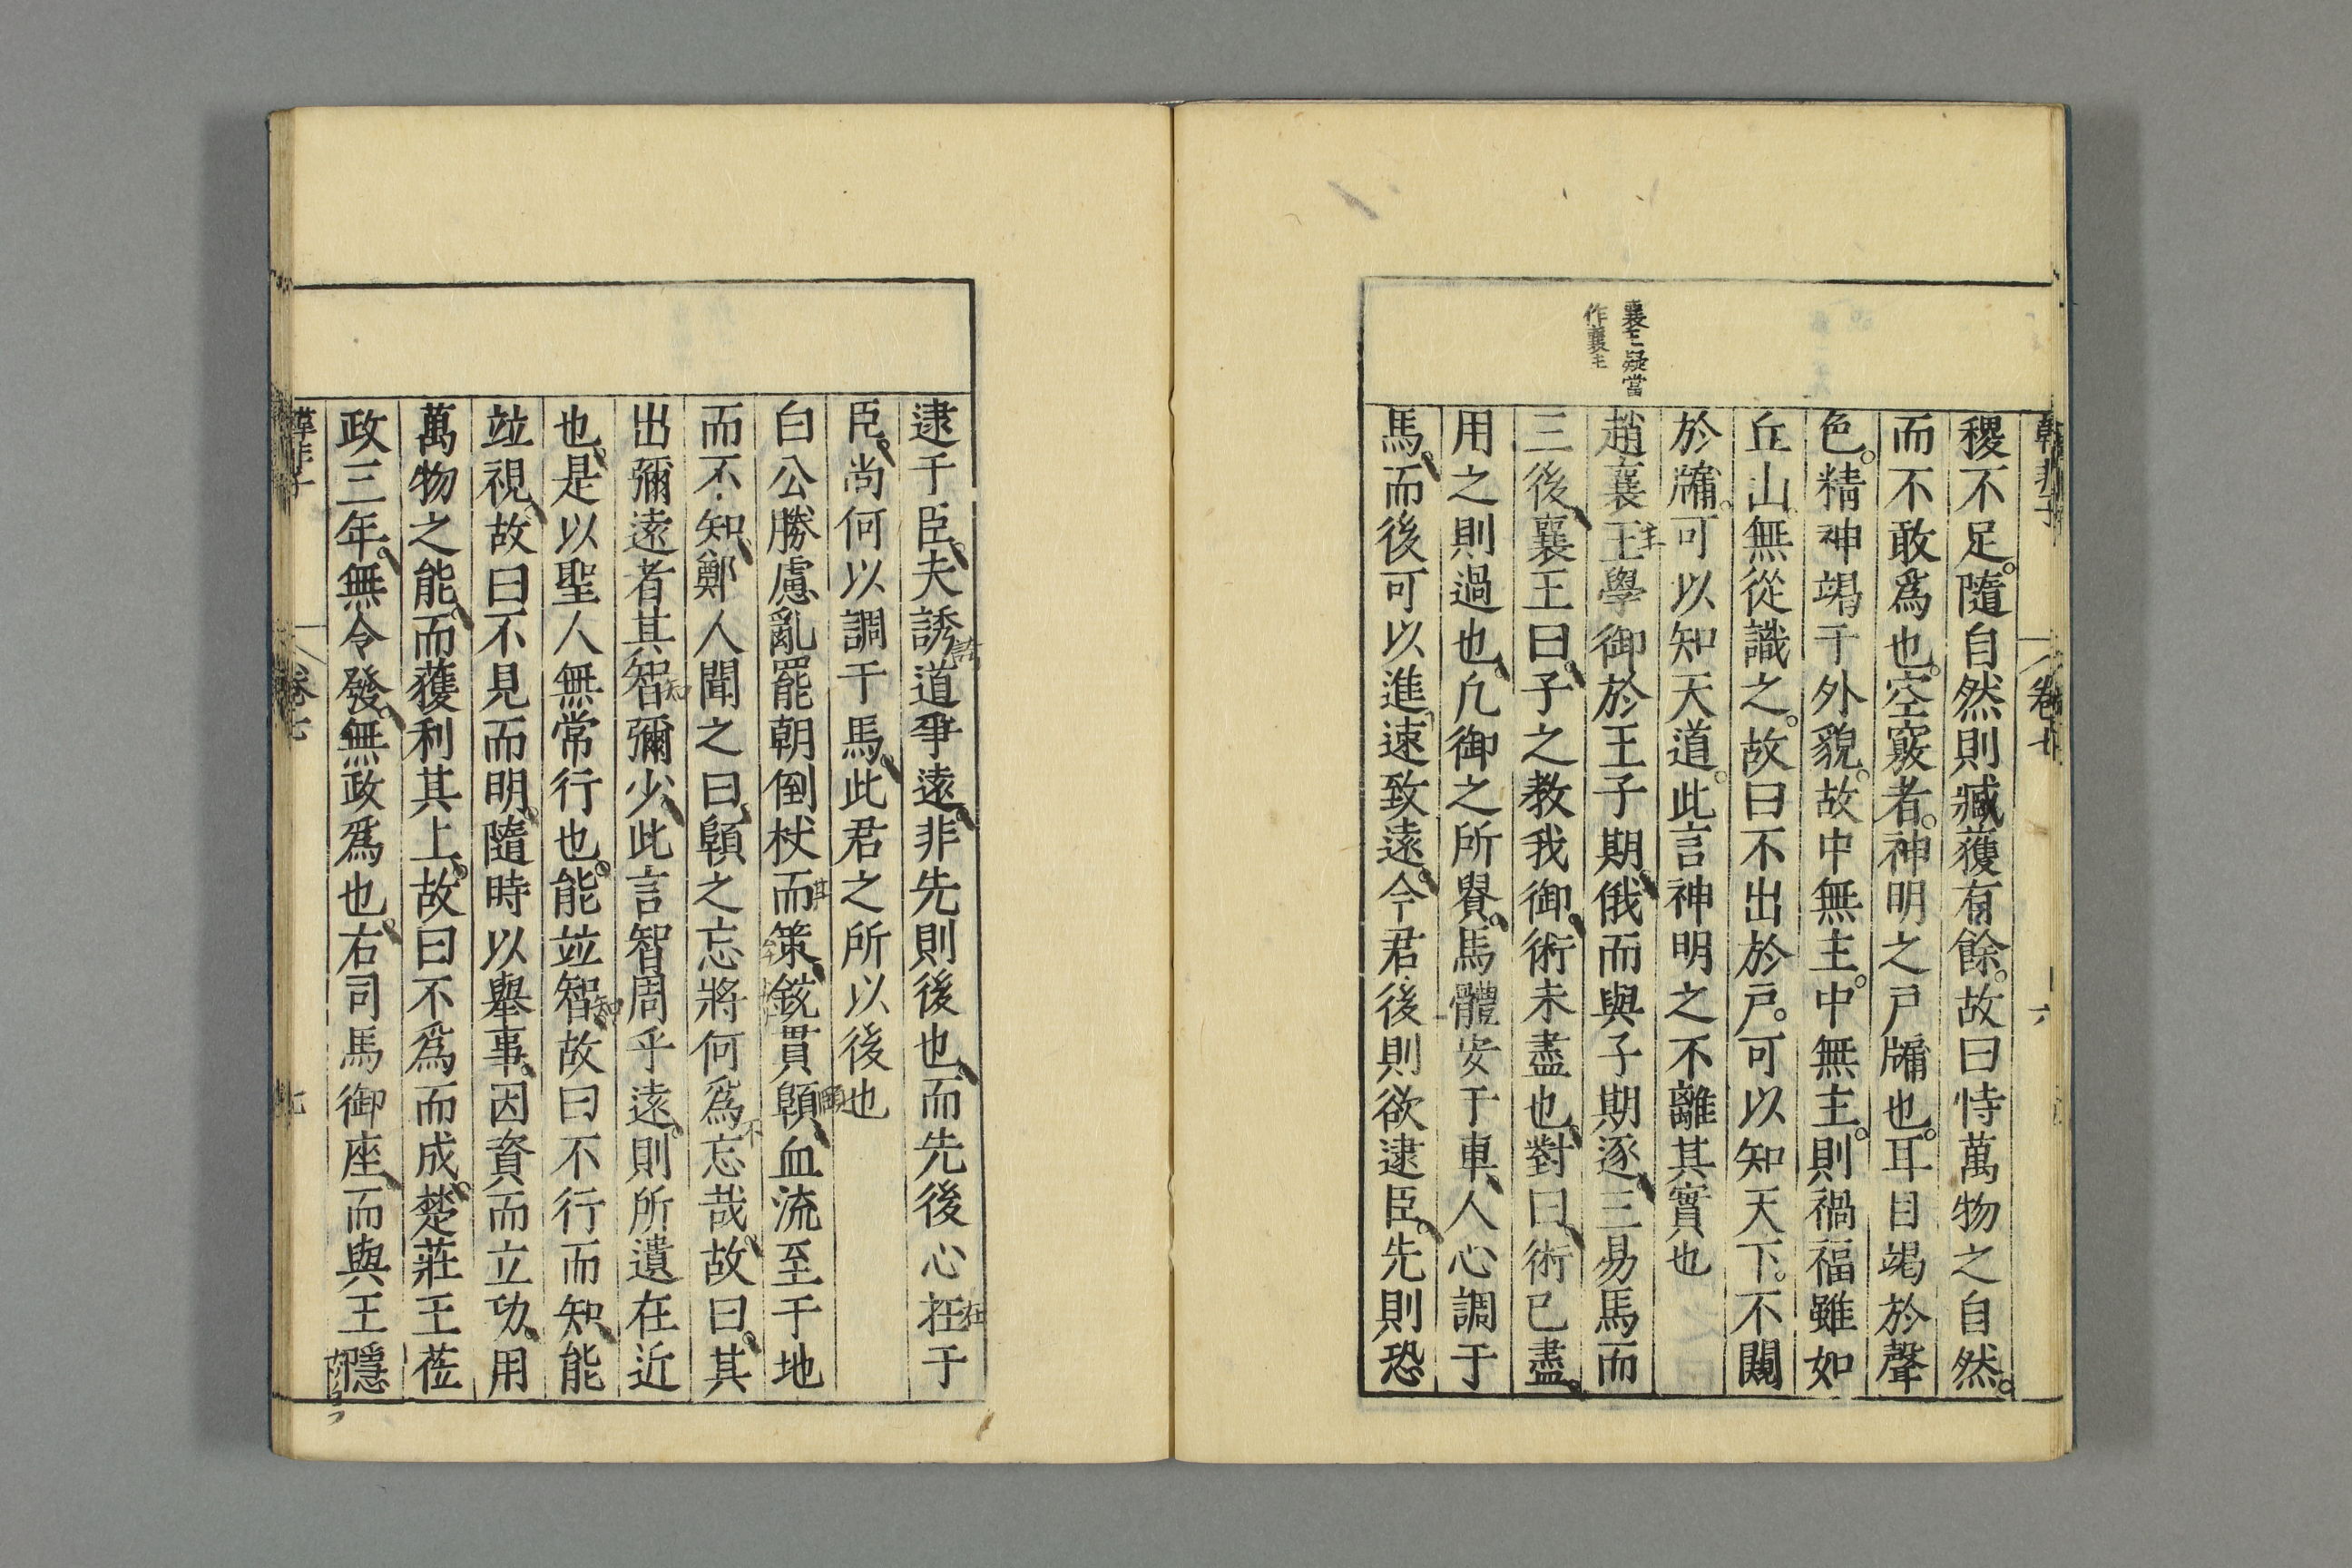 韓非子 卷七 六
稷不足。隨自然則臧獲有餘。故曰恃萬物之自然。
而不敢爲也。空竅者。神明之戸牖也。耳目竭於聲
色。精神竭于外貌。故中無主。中無主。則禍福雖如
丘山無從識之。故曰不出於戸。可以知天下。不闚
於牖。可以知天道。此言神明之不離其實也
趙襄王主學御於王子期俄而與子期逐三易馬而
襄王疑當
作襄主
三後襄王曰子之教我御術未盡也對曰術已盡。
用之則過也凡御之所貴。馬體安于車人心調于
馬而後可以進速致遠。今君後則欲逮臣。先則恐
逮于臣。夫誘道爭遠。非先則後也而先後心在于
臣。尚何以調于馬。此君之所以後也
白公勝慮亂罷朝倒杖而策銳貫顊血流至于地
而不知鄭人聞之曰顊之忘將何爲不忘哉。故曰。其
出彌遠者其智知彌少此言智周乎遠。則所遺在近
也。是以聖人無常行也。能竝智知故曰不行而知能
竝視。故曰不見而明。隨時以舉事。因資而立功。用
萬物之能。而獲利其上。故曰不爲而成。楚莊王莅
政三年。無令發。無政爲也。右司馬御座而與王隱
韓非子 卷七 七